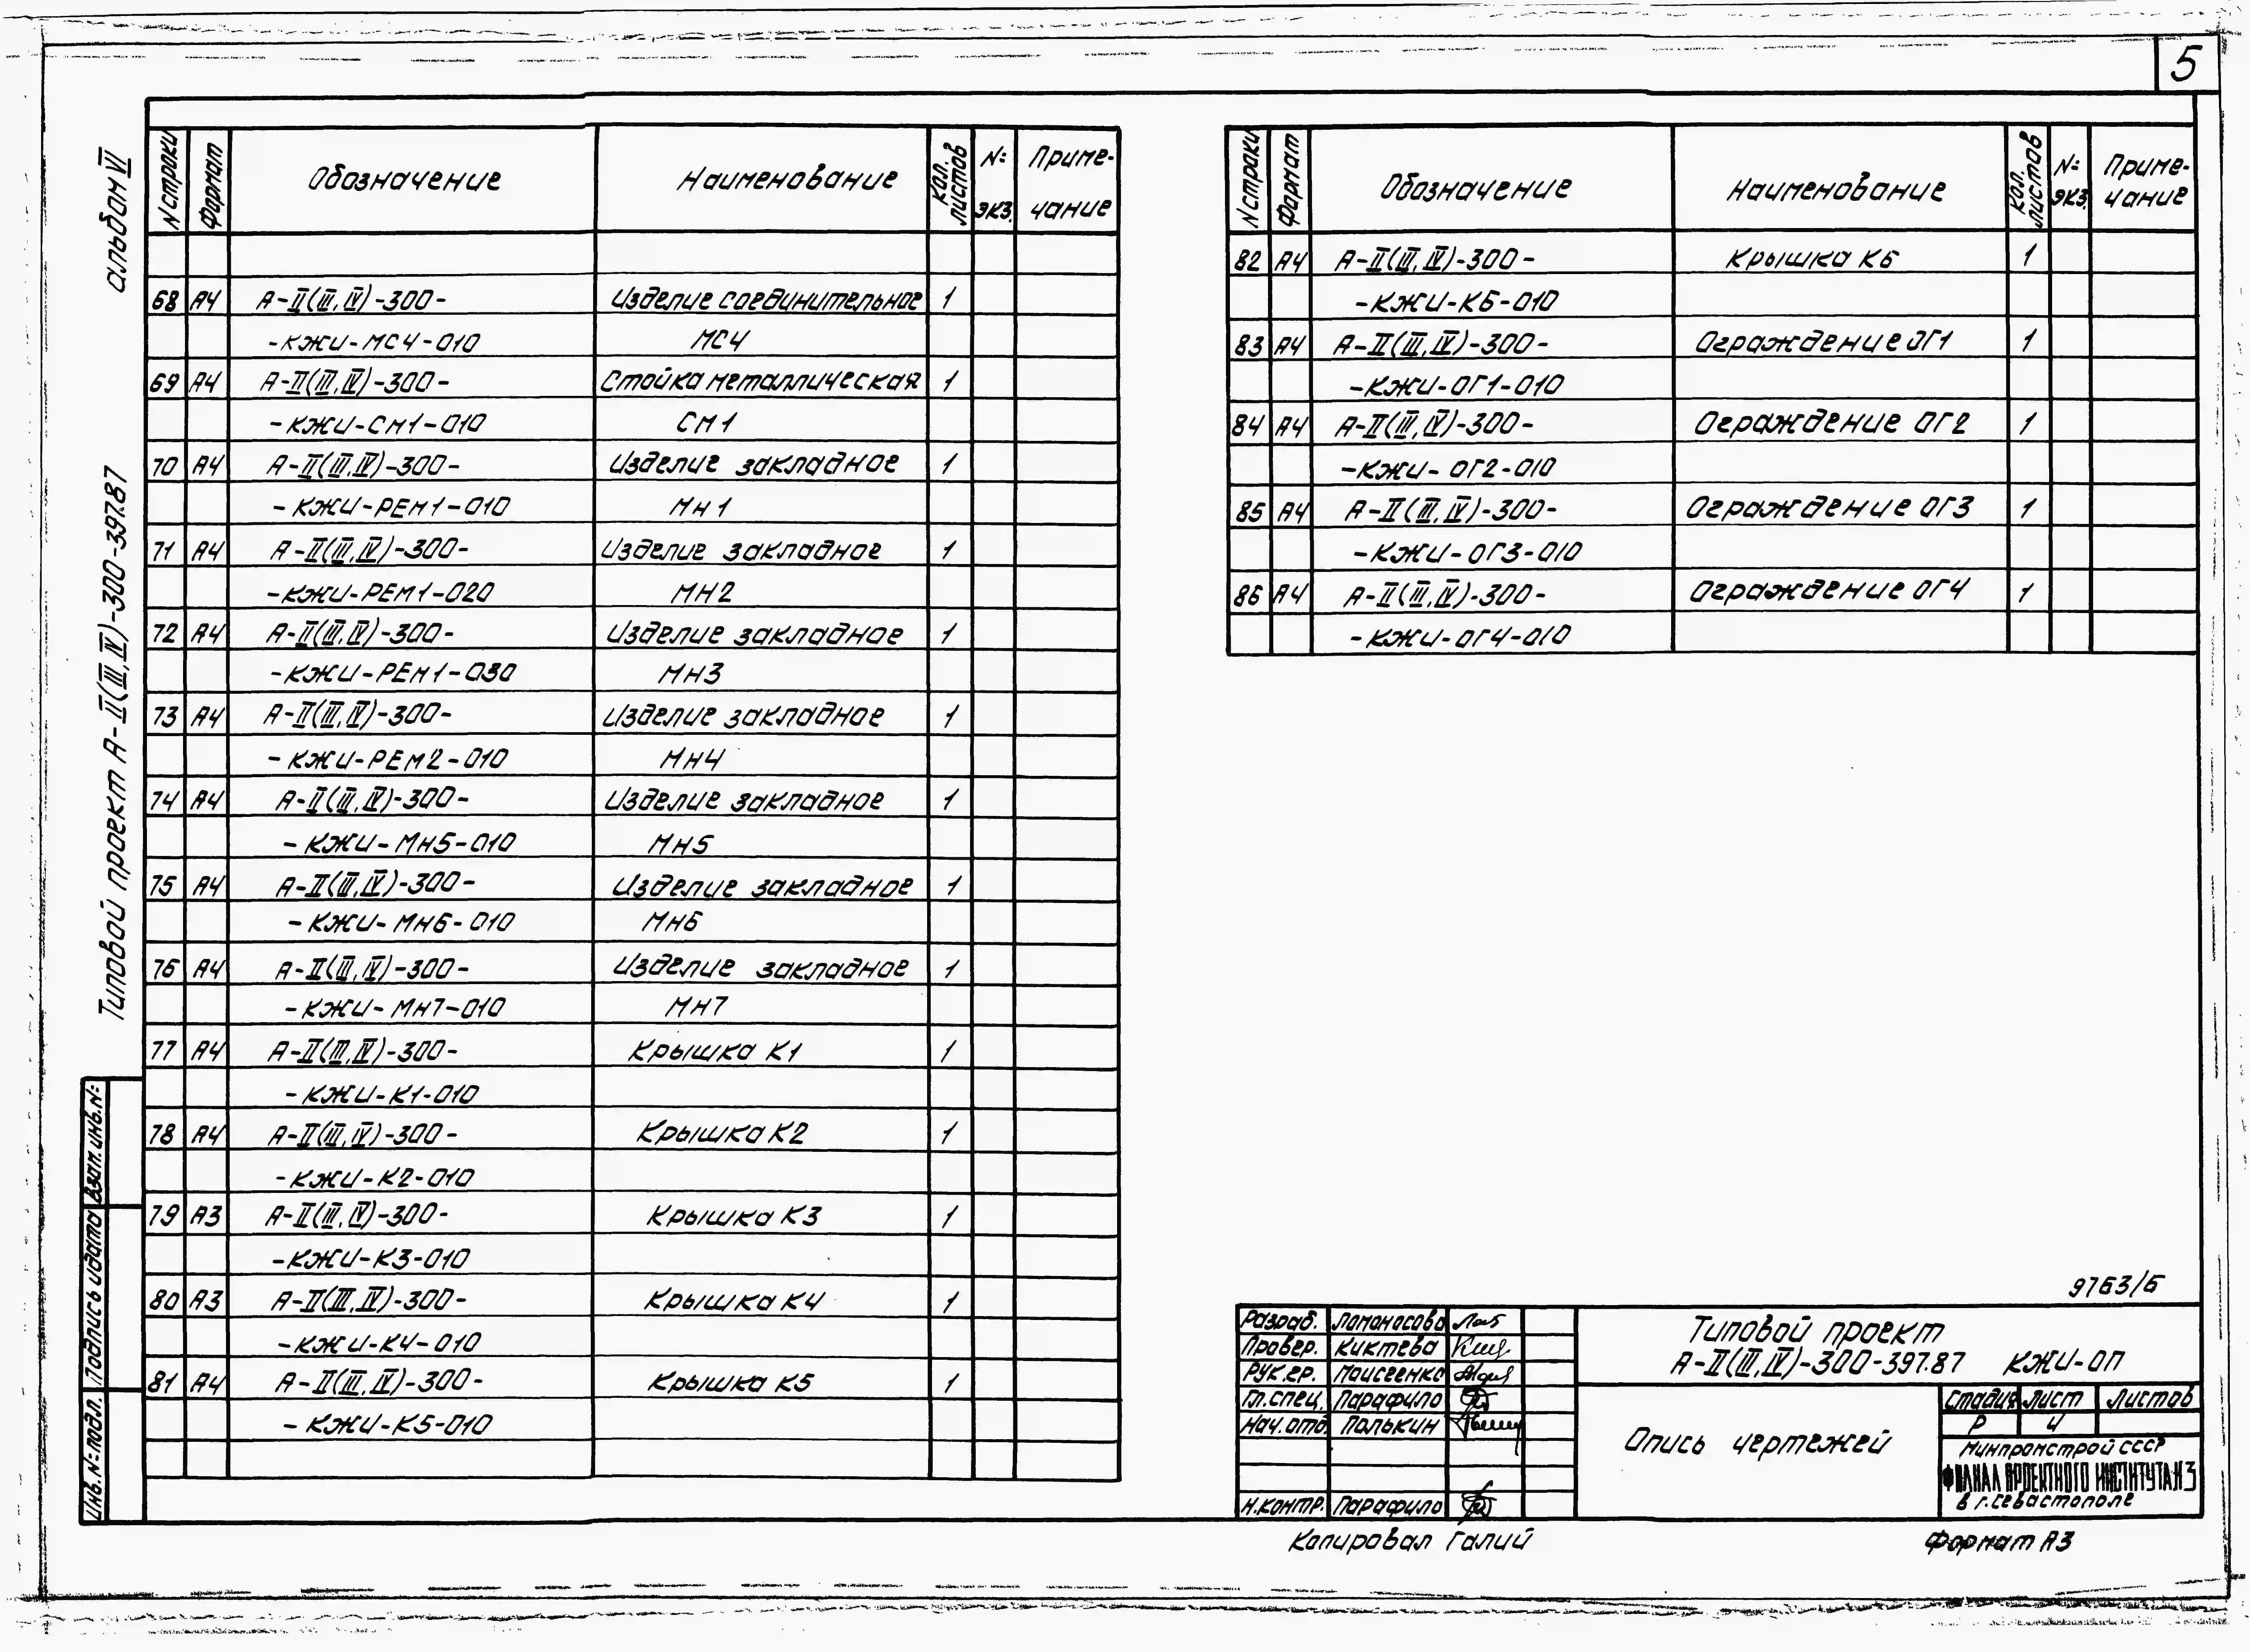 5
альбом VI
Типовой проект А-II(III,IV)-300-397.87
N строки Формат Обозначение Наименование Кол. листов №: экз. Приме-чание
68 А4 А-II(III,IV)-300- Изделие соединительное 1
-КЖИ-МС4-010 МС4
69 А4 А-II(III,IV)-300- Стойка металлическая 1
-КЖИ-СМ1-010 СМ1
70 А4 А-II(III,IV)-300- Изделие закладное 1
-КЖИ-РЕМ1-010 МН1
71 А4 А-II(III,IV)-300- Изделие закладное 1
-КЖИ-РЕМ1-020 МН2
72 А4 А-II(III,IV)-300- Изделие закладное 1
-КЖИ-РЕМ1-030 МН3
73 А4 А-II(III,IV)-300- Изделие закладное 1
-КЖИ-РЕМ2-010 МН4
74 А4 А-II(III,IV)-300- Изделие закладное 1
-КЖИ-МН5-010 МН5
75 А4 А-II(III,IV)-300- Изделие закладное 1
-КЖИ-МН6-010 МН6
76 А4 А-II(III,IV)-300- Изделие закладное 1
-КЖИ-МН7-010 МН7
77 А4 А-II(III,IV)-300- Крышка К1 1
-КЖИ-К1-010
78 А4 А-II(III,IV)-300- Крышка К2 1
-КЖИ-К2-010
79 А3 А-II(III,IV)-300- Крышка К3 1
-КЖИ-К3-010
80 А3 А-II(III,IV)-300- Крышка К4 1
-КЖИ-К4-010
81 А4 А-II(III,IV)-300- Крышка К5 1
-КЖИ-К5-010
N строки Формат Обозначение Наименование Кол. листов №: экз. Приме-чание
82 А4 А-II(III,IV)-300- Крышка К6 1
-КЖИ-К6-010
83 А4 А-II(III,IV)-300- Ограждение ОГ1 1
-КЖИ-ОГ1-010
84 А4 А-II(III,IV)-300- Ограждение ОГ2 1
-КЖИ-ОГ2-010
85 А4 А-II(III,IV)-300- Ограждение ОГ3 1
-КЖИ-ОГ3-010
86 А4 А-II(III,IV)-300- Ограждение ОГ4 1
-КЖИ-ОГ4-010
Взап. инв. №:
Подпись и дата
Инв. №: подл.
9763/6
Разраб. Ломоносова
Провер. Киктева
Рук.гр. Моисеенко
Гл.спец. Парафило
Нач.отд. Полькин
Н.контр. Парафило
Типовой проект
А-II(III,IV)-300-397.87 КЖИ-ОП
Опись чертежей
Стадия Лист Листов
Р 4
Минпромстрой СССР
ФИЛИАЛ ПРОЕКТНОГО ИНСТИТУТА №3
в г. Севастополе
Копировал Галий
Формат А3